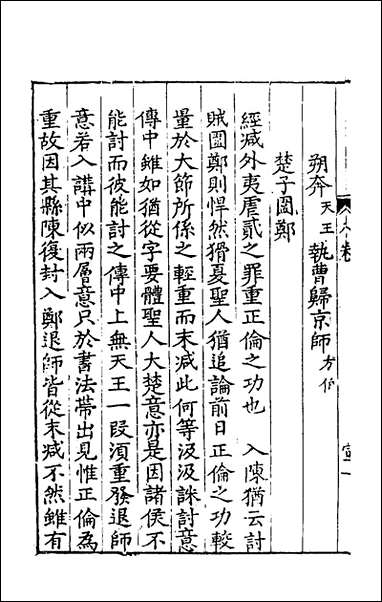 朔奔天王執曹歸京師方伯
楚子圍鄭
經減外夷虐貳之罪重正倫之功也　入陳猶云討
賊圍鄭則悍然猾夏聖人猶追論前日正倫之功較
量於大節所係之輕重而末減此何等汲汲誅討意
傳中雖如猶從字要體聖人大楚意亦是因諸侯不
能討而彼能討之傳中上無天王一段須重發退師
意若入講中似兩層意只於書法帶出見惟正倫為
重故因其縣陳復封入鄭退師皆從末減不然雖有